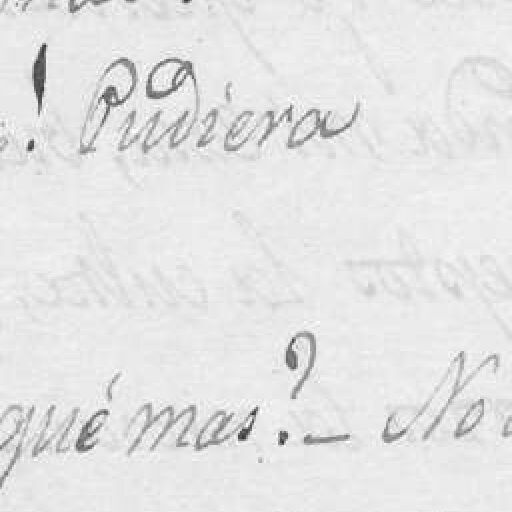 ! Pudiera
qué mas?_ No